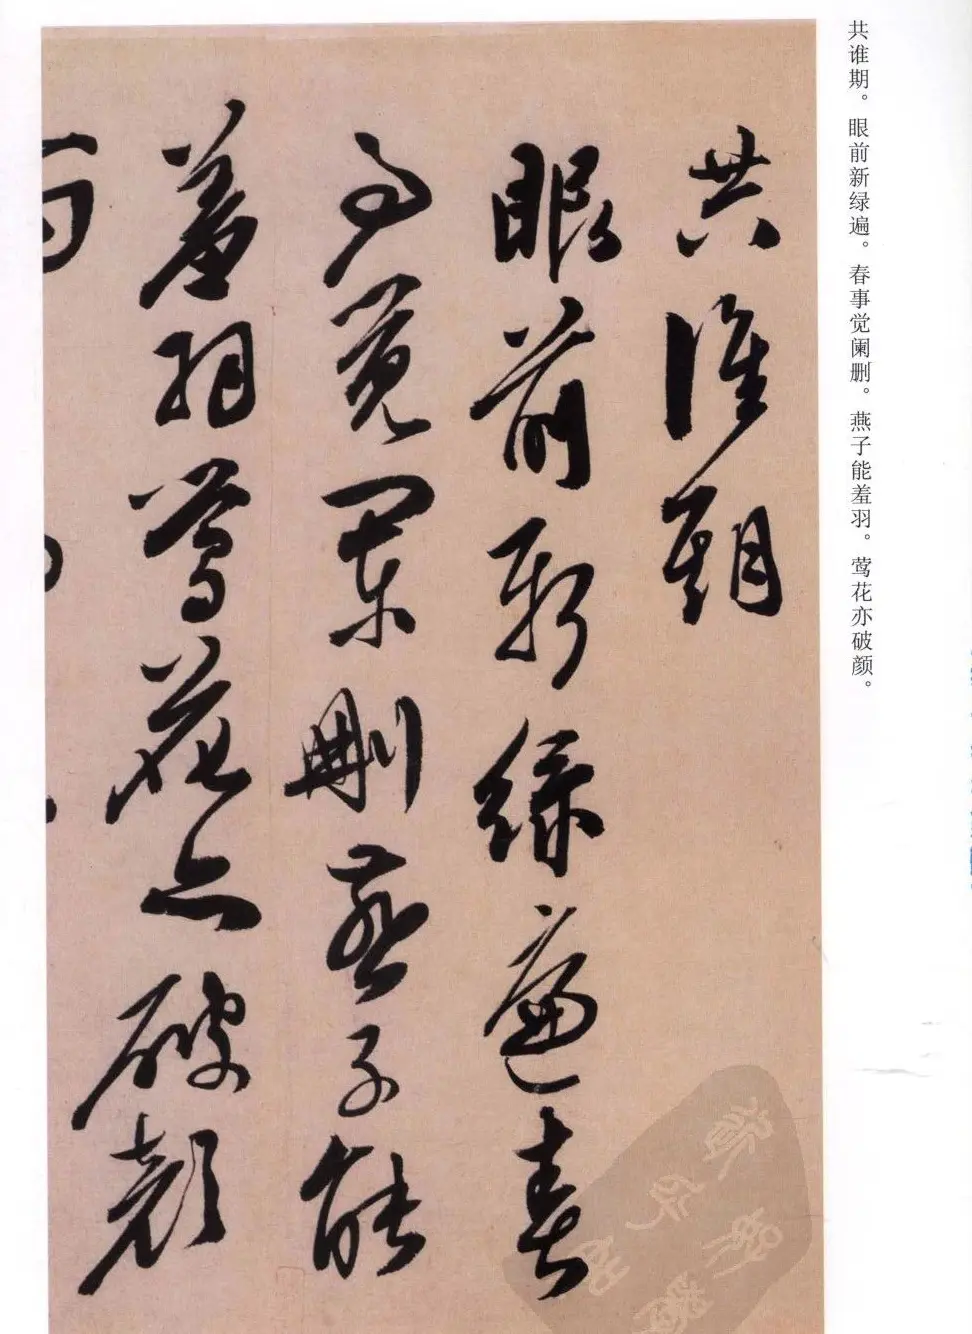 共谁期。眼前新绿遍。春事觉阑删。燕子能羞羽。莺花亦破颜。
共誰期
眼前新綠遍春
事覺闌刪燕子能
羞羽鶯花亦破顏